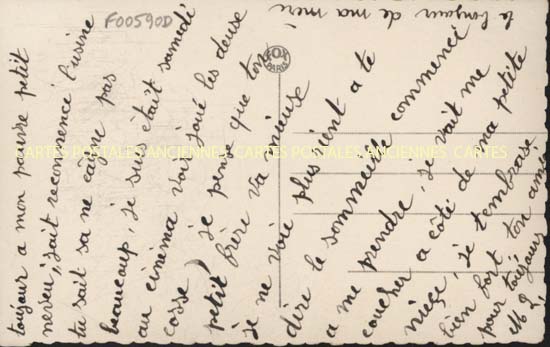 toujour a mon pauvre petit
nerveu, sait recomencé l'usine
tu sait sa ne câgne pas
beaucoup, je suis était samedi
au cinéma voir joué les deuse
corse, je pense que ton
petit frère va mieuse
je ne voie plus rient a te
dire le sommeille commence
a me prendre, je vait me
coucher a côté de ma petite
nièce, je t'embrase
bien fort ton amie
pour toujours
le bonjour de ma mère
F00590D
FOX
PARIS
CARTES POSTALES ANCIENNES CARTES POSTALES ANCIENNES CARTES